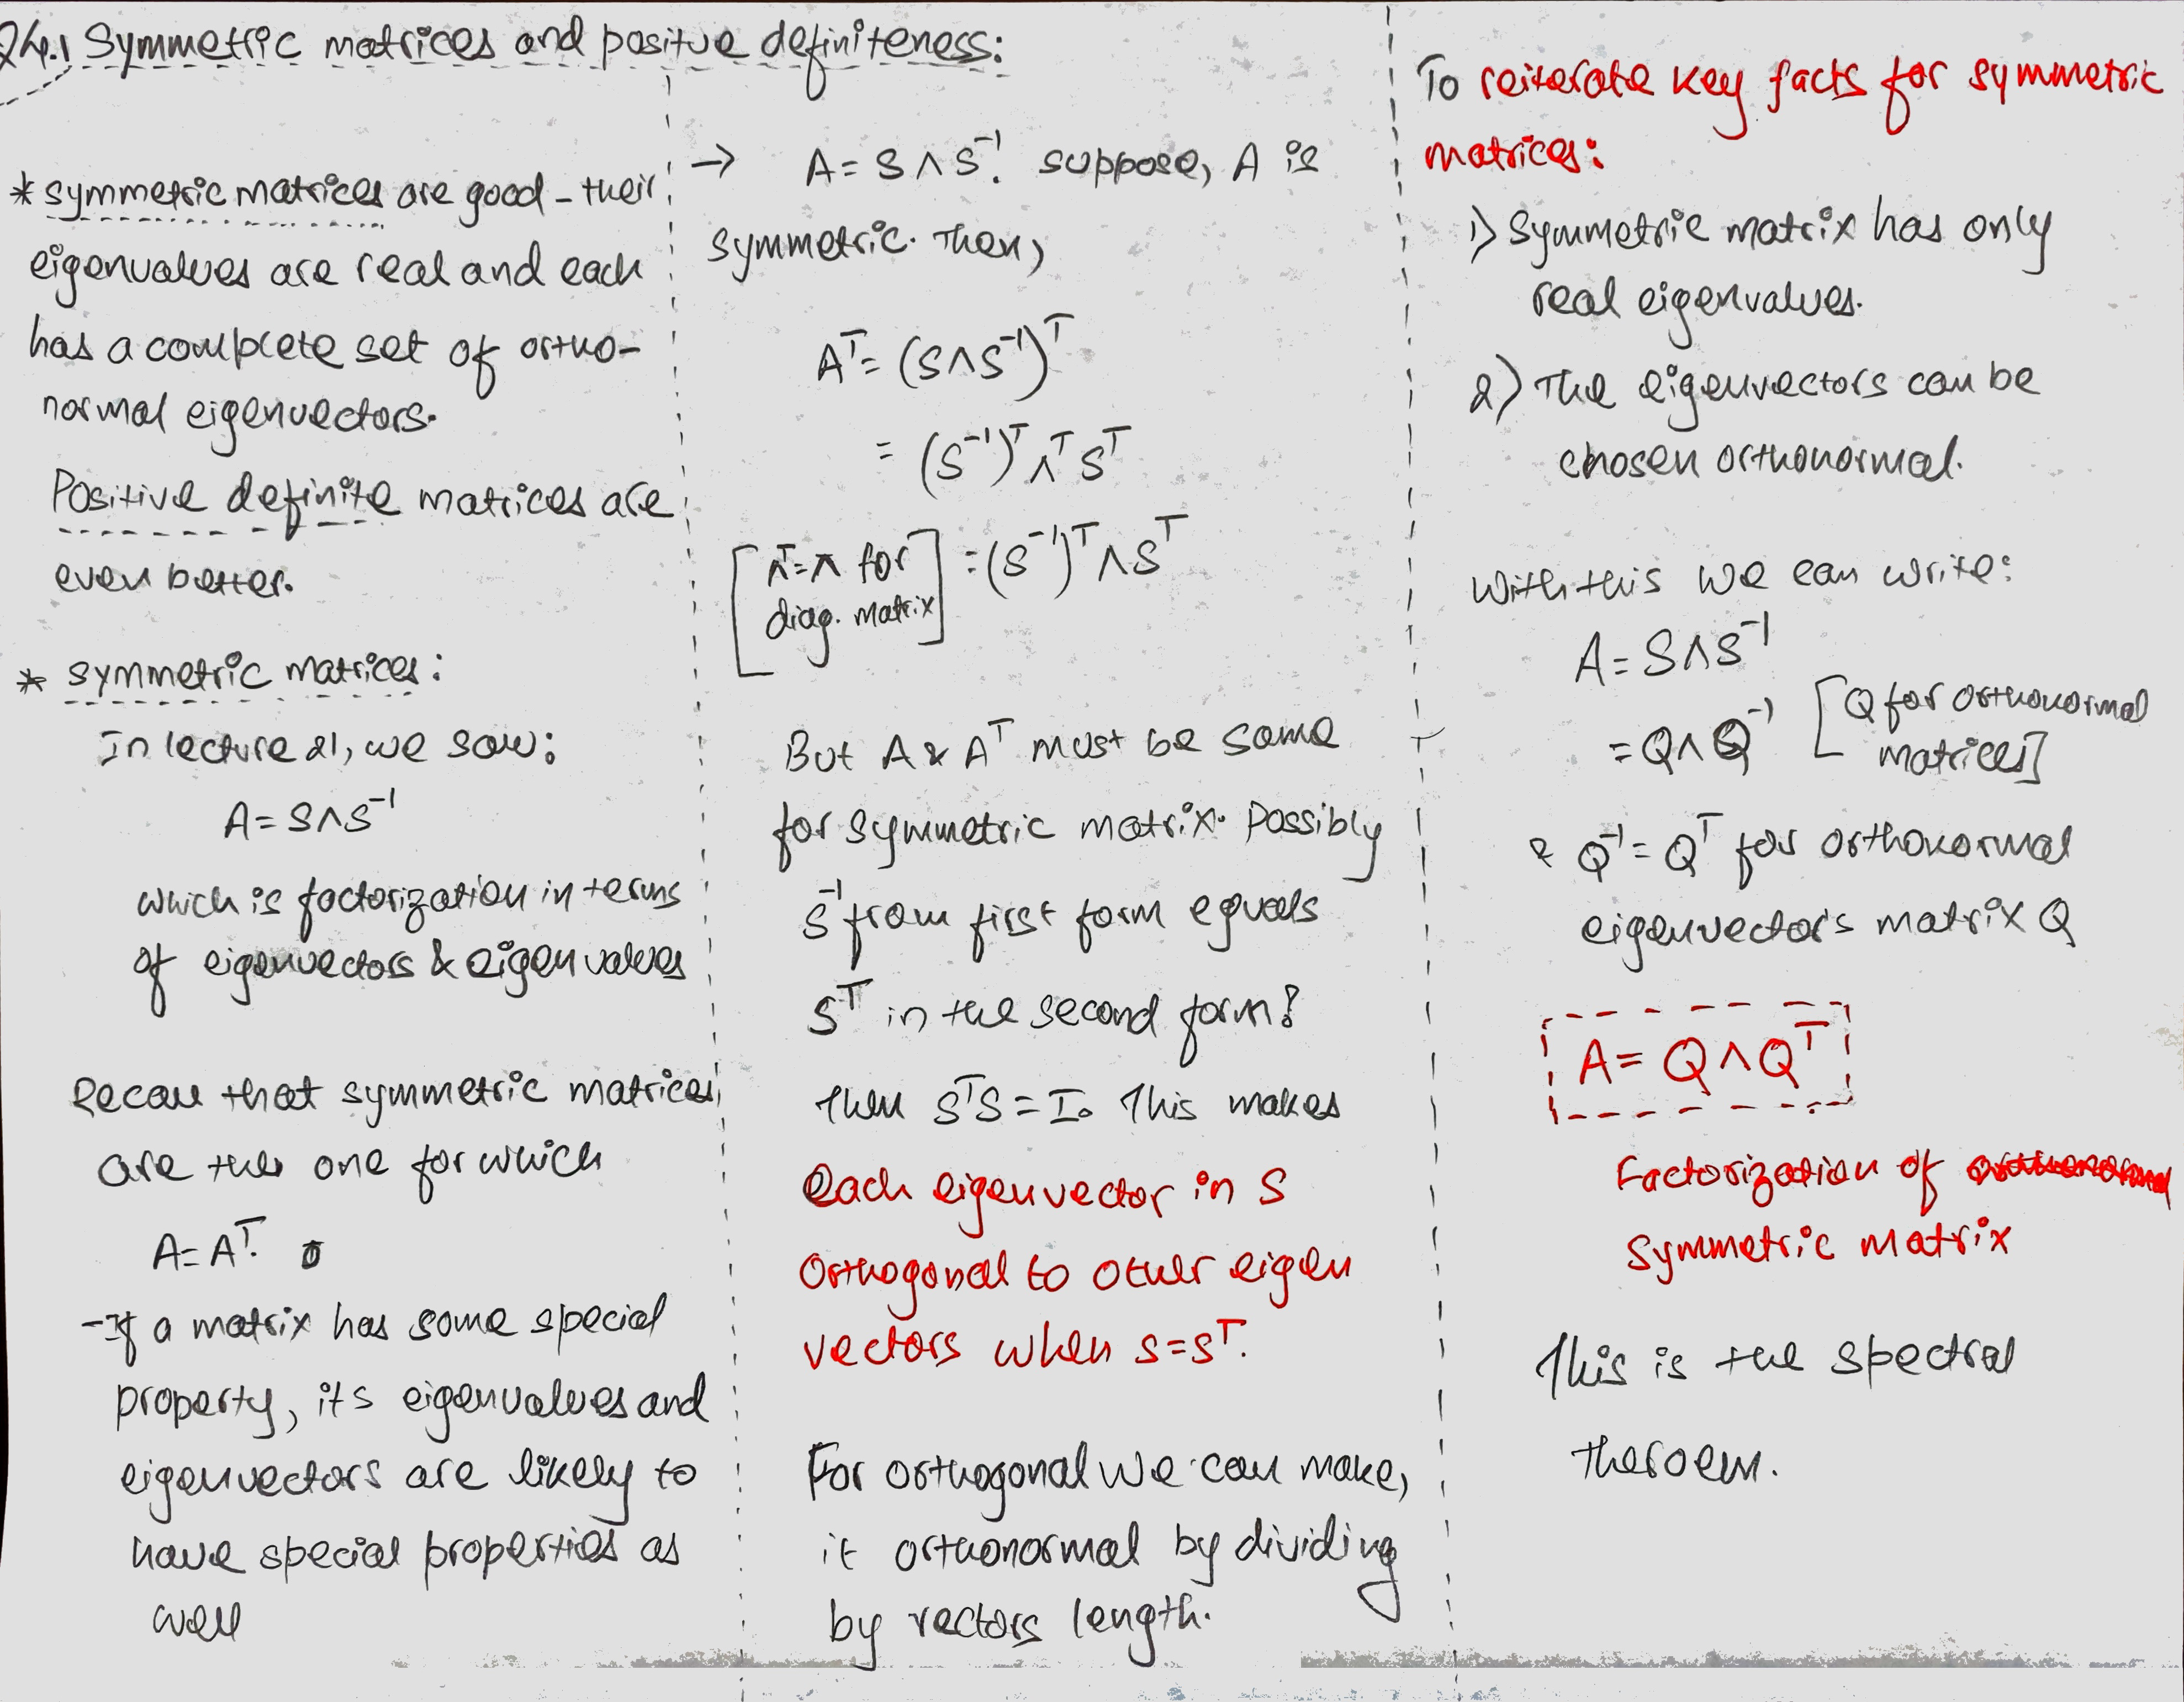 24.1 Symmetric matrices and positive definiteness:
* symmetric matrices are good - their
eigenvalues are real and each
has a complete set of ortho-
normal eigenvectors.
Positive definite matrices are
even better.
* symmetric matrices:
In lecture 21, we saw:
A = SΛS⁻¹
which is factorization in terms
of eigenvectors & eigenvalues
Recall that symmetric matrices
are the one for which
A = Aᵀ.
- If a matrix has some special
property, its eigenvalues and
eigenvectors are likely to
have special properties as
well
→ A = SΛS⁻¹. suppose, A is
symmetric. Then,
Aᵀ = (SΛS⁻¹)ᵀ
= (S⁻¹)ᵀ Λᵀ Sᵀ
[Λᵀ = Λ for
diag. matrix] = (S⁻¹)ᵀ Λ Sᵀ
But A & Aᵀ must be same
for symmetric matrix. Possibly
S⁻¹ from first form equals
Sᵀ in the second form?
Then SᵀS = I. This makes
each eigenvector in S
orthogonal to other eigen
vectors when S = Sᵀ.
For orthogonal we can make,
it orthonormal by dividing
by vectors length.
To reiterate key facts for symmetric
matrices:
1) Symmetric matrix has only
real eigenvalues.
2) The eigenvectors can be
chosen orthonormal.
With this we can write:
A = SΛS⁻¹
= QΛQ⁻¹ [Q for orthonormal
matrices]
& Q⁻¹ = Qᵀ for orthonormal
eigenvectors matrix Q
A = QΛQᵀ
Factorization of
Symmetric matrix
This is the spectral
theroem.